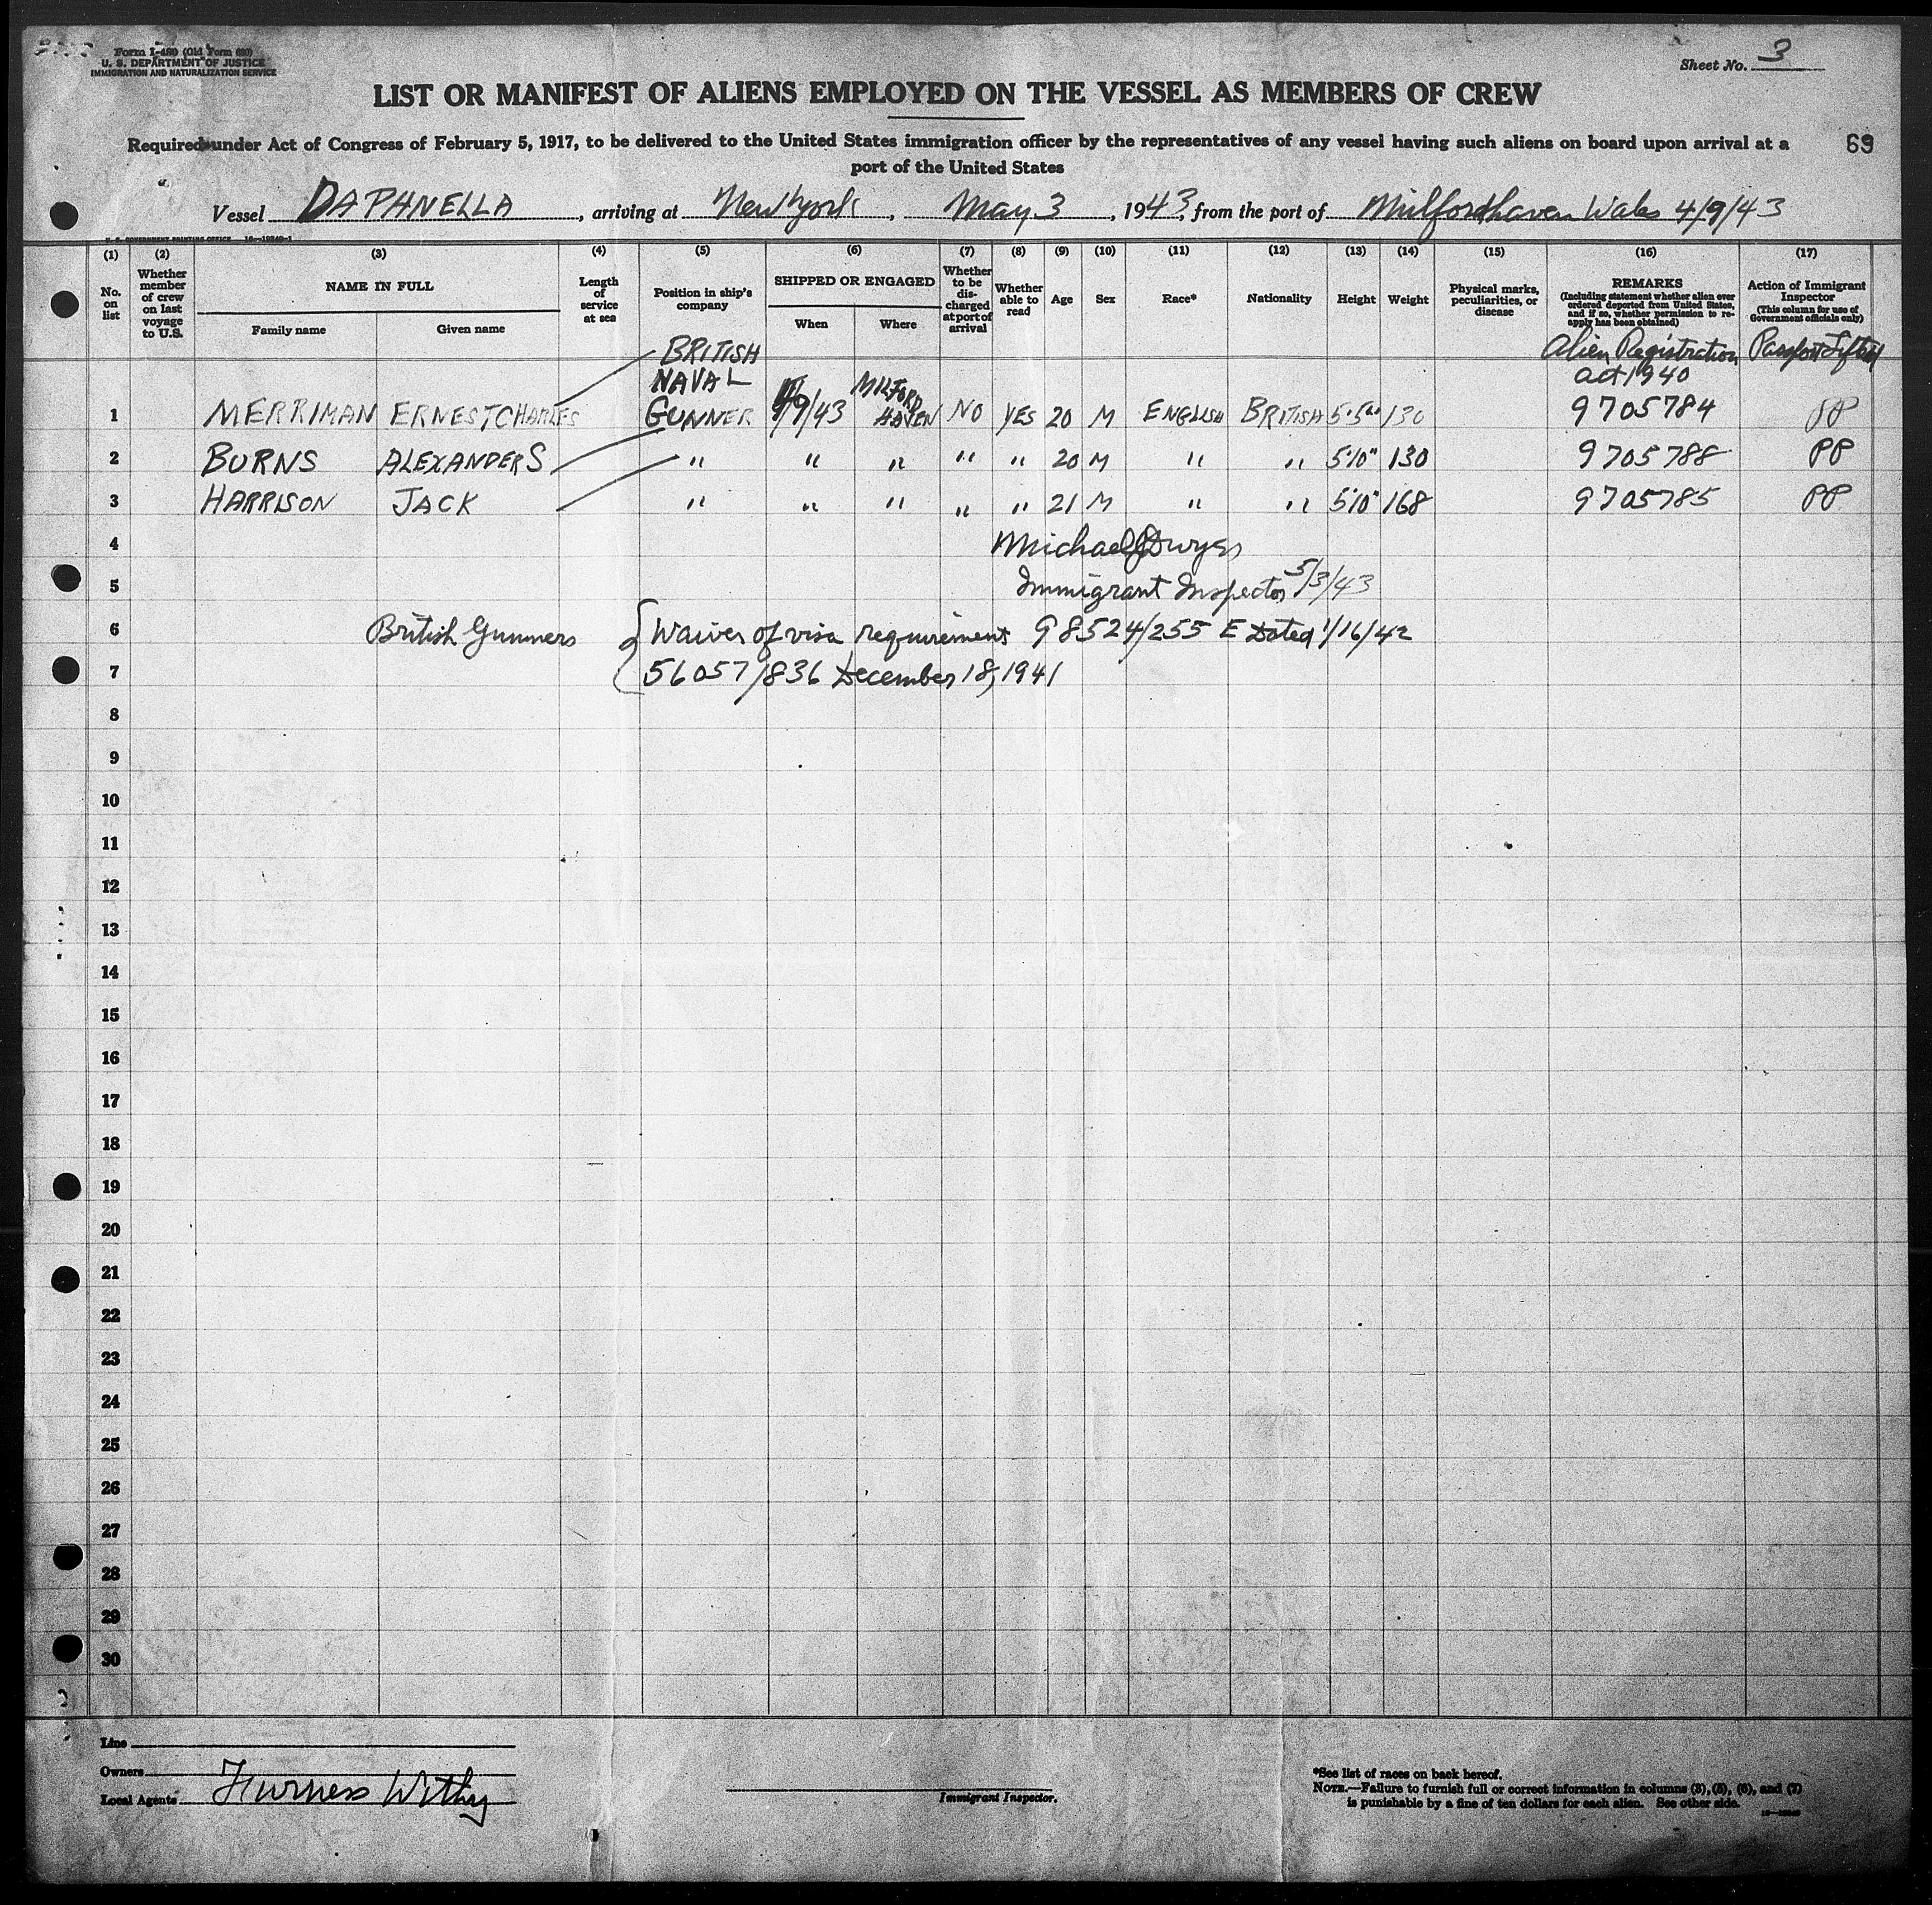 Form I-480 (Old Form 680)
U. S. DEPARTMENT OF JUSTICE
IMMIGRATION AND NATURALIZATION SERVICE
Sheet No. 3
LIST OR MANIFEST OF ALIENS EMPLOYED ON THE VESSEL AS MEMBERS OF CREW
Required under Act of Congress of February 5, 1917, to be delivered to the United States immigration officer by the representatives of any vessel having such aliens on board upon arrival at a
port of the United States
69
Vessel DAPHNELLA, arriving at New York, May 3, 1943, from the port of Milfordhaven Wales 4/9/43
U. S. GOVERNMENT PRINTING OFFICE
(1) (2) (3) (4) (5) (6) (7) (8) (9) (10) (11) (12) (13) (14) (15) (16) (17)
No. on list
Whether member of crew on last voyage to U.S.
NAME IN FULL
Family name Given name
Length of service at sea
Position in ship's company
SHIPPED OR ENGAGED
When Where
Whether to be discharged at port of arrival
Whether able to read
Age
Sex
Race*
Nationality
Height
Weight
Physical marks, peculiarities, or disease
REMARKS
(Including statement whether alien ever ordered deported from United States, and if so, whether permission to reapply has been obtained)
Action of Immigrant Inspector
(This column for use of Government officials only)
BRITISH Alien Registration Passport Lifted
NAVAL MILFORD act 1940
1 MERRIMAN ERNEST CHARLES GUNNER 9/43 HAVEN NO YES 20 M ENGLISH BRITISH 5'5" 130 9705784 PP
2 BURNS ALEXANDER S " " " " " 20 M " " 5'10" 130 9705788 PP
3 HARRISON JACK " " " " " 21 M " " 5'10" 168 9705785 PP
4 Michael J Dwyer
5 Immigrant Inspector 5/3/43
6 British Gunners { Waiver of visa requirement 98524/255 E Dated 1/16/42
7 56057/836 December 18, 1941
8
9
10
11
12
13
14
15
16
17
18
19
20
21
22
23
24
25
26
27
28
29
30
Line
Owners
Local Agents Furness Withy
Immigrant Inspector.
*See list of races on back hereof.
NOTE.—Failure to furnish full or correct information in columns (3), (5), (6), and (7)
is punishable by a fine of ten dollars for each alien. See other side.